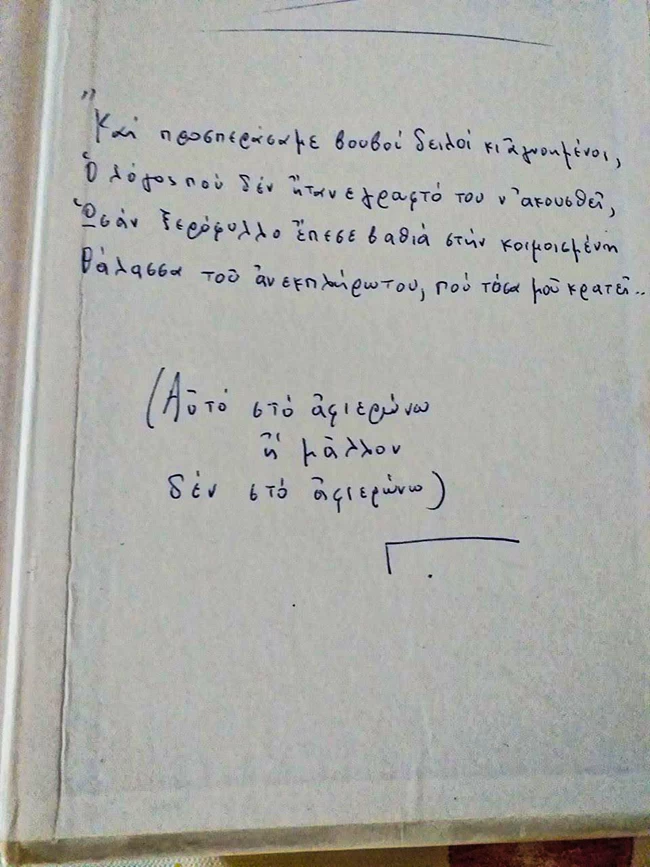 "Καί προσπεράσαμε βουβοί δειλοί κι ἀγνοημένοι,
Ὁ λόγος πού δέν ἤταν εγραφτό του ν' ἀκουσθεῖ,
Ὡσάν ξερόφυλλο ἔπεσε βαθιά στήν κοιμοισμένη
Θάλασσα τοῦ ἀνεκπλήρωτου, πού τόσα μοῦ κρατεῖ..
(Αὐτό στό ἀφιερώνω
ἤ μᾶλλον
δέν στό ἀφιερώνω)
Γ.